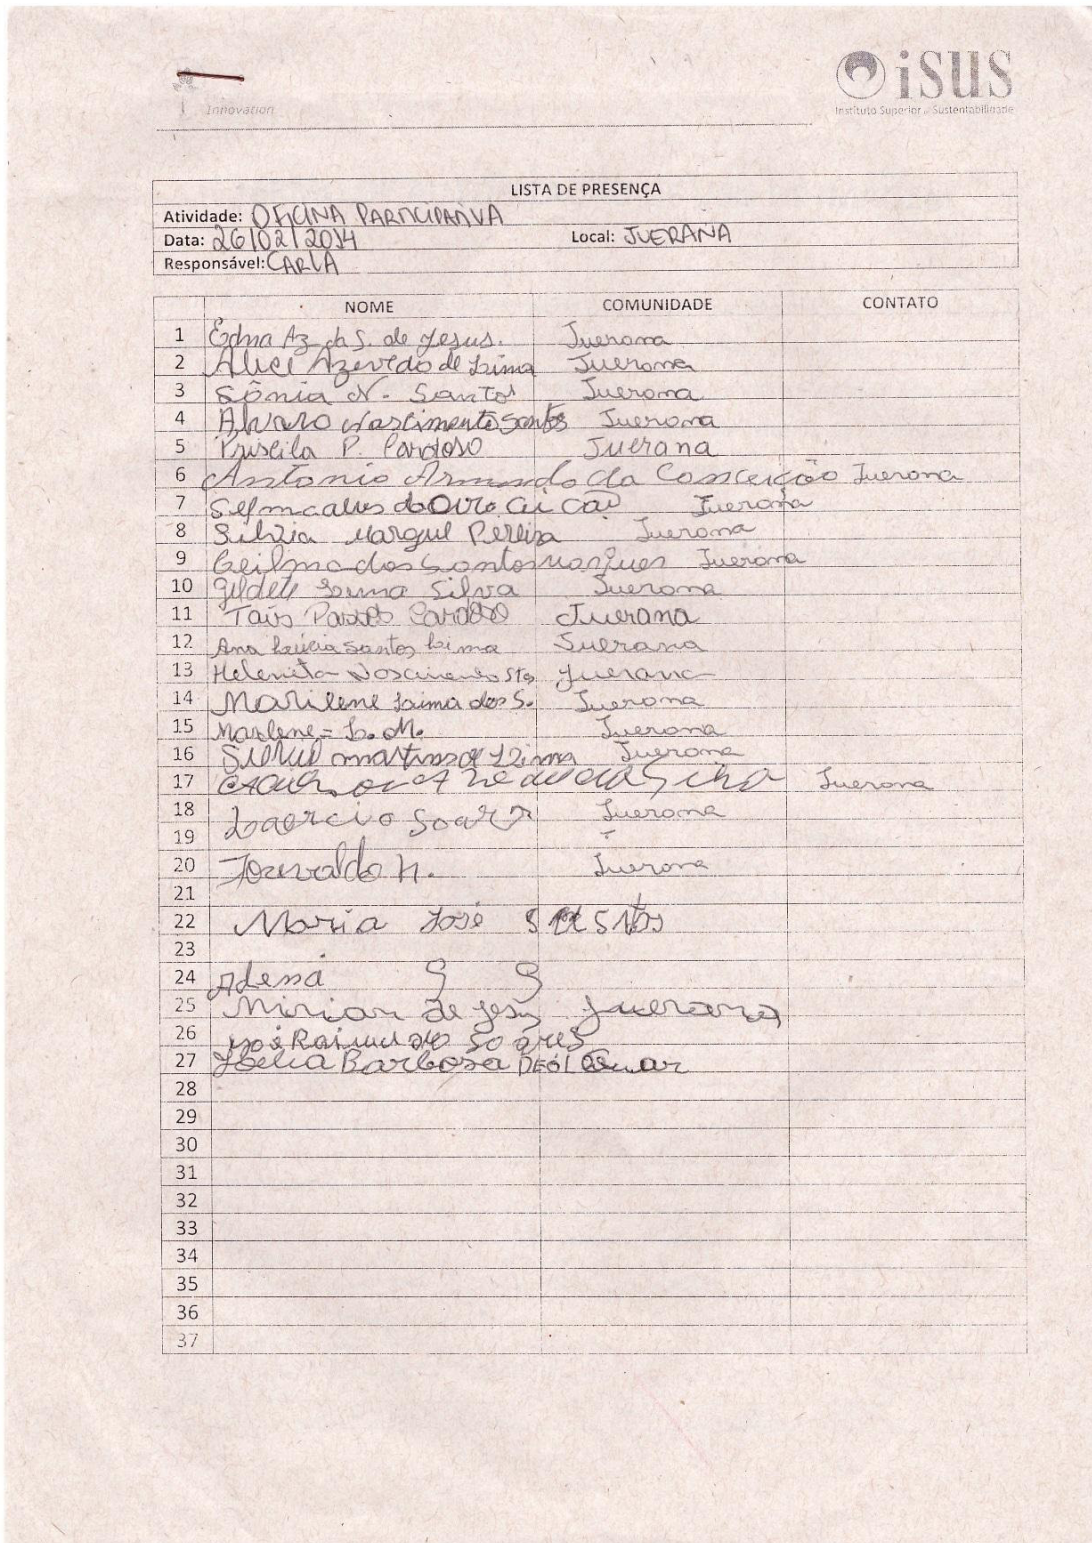 Innovation
isus
Instituto Superior de Sustentabilidade
LISTA DE PRESENÇA
Atividade: OFICINA PARTICIPATIVA
Data: 26/02/2014 Local: JUERANA
Responsável: CARLA
NOME COMUNIDADE CONTATO
1 Edna Az da S. de Jesus. Juerana
2 Alice Azevedo de Lima Juerana
3 Sônia N. Santos Juerana
4 Alvaro Nascimento Santos Juerana
5 Priscila P. Cardoso Juerana
6 Antonio Armando da Conceição Juerana
7 Juerana
8 Silvia Marques Pereira Juerana
9 Geilma dos Santos Marques Juerana
10 Gildete Lima Silva Juerana
11 Taís Passos Cardoso Juerana
12 Ana Lúcia Santos Lima Juerana
13 Helenita Nascimento Sts Juerana
14 Marilene Lima dos S. Juerana
15 Marlene = L. M. Juerana
16 Martins de Lima Juerana
17 Juerana
18 Laercio Soares Juerana
19
20 Jozevaldo N. Juerana
21
22 Maria José
23
24
25 Mirian de Jesus Juerana
26 José Raimundo Soares
27 Barbosa
28
29
30
31
32
33
34
35
36
37